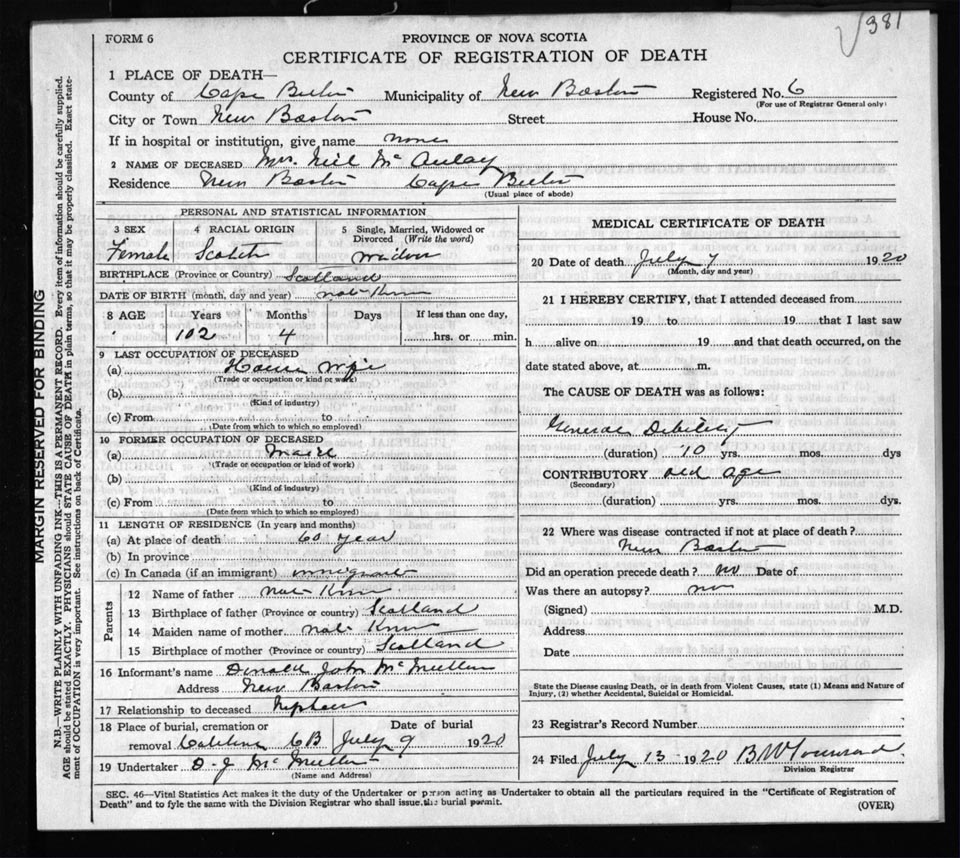 381
FORM 6
PROVINCE OF NOVA SCOTIA
CERTIFICATE OF REGISTRATION OF DEATH
1 PLACE OF DEATH—
County of Cape Breton Municipality of New Boston Registered No. 6
(For use of Registrar General only)
City or Town New Boston Street House No.
If in hospital or institution, give name none
2 NAME OF DECEASED Mrs. Neil McAulay
Residence New Boston Cape Breton
(Usual place of abode)
PERSONAL AND STATISTICAL INFORMATION
3 SEX 4 RACIAL ORIGIN 5 Single, Married, Widowed or Divorced (Write the word)
Female Scotch Widow
BIRTHPLACE (Province or Country) Scotland
DATE OF BIRTH (month, day and year) not Known
8 AGE Years Months Days If less than one day,
102 4 hrs. or min.
9 LAST OCCUPATION OF DECEASED
(a) House Wife
(Trade or occupation or kind of work)
(b)
(Kind of industry)
(c) From to
(Date from which to which so employed)
10 FORMER OCCUPATION OF DECEASED
(a)
(Trade or occupation or kind of work)
(b)
(Kind of industry)
(c) From to
(Date from which to which so employed)
11 LENGTH OF RESIDENCE (In years and months)
(a) At place of death 60 year
(b) In province
(c) In Canada (if an immigrant) immigrant
Parents
12 Name of father not Known
13 Birthplace of father (Province or country) Scotland
14 Maiden name of mother not Known
15 Birthplace of mother (Province or country) Scotland
16 Informant's name Donald John McMullin
Address New Boston
17 Relationship to deceased Nephew
18 Place of burial, cremation or Date of burial
removal Catalone CB July 9 1920
19 Undertaker D. J. McMullin
(Name and Address)
MEDICAL CERTIFICATE OF DEATH
20 Date of death July 7 1920
(Month, day and year)
21 I HEREBY CERTIFY, that I attended deceased from
19 to 19 that I last saw
h alive on 19 and that death occurred, on the
date stated above, at m.
The CAUSE OF DEATH was as follows:
General Debility
(duration) 10 yrs. mos. dys
CONTRIBUTORY old age
(Secondary)
(duration) yrs. mos. dys.
22 Where was disease contracted if not at place of death?
New Boston
Did an operation precede death? no Date of
Was there an autopsy? no
(Signed) M.D.
Address
Date
State the Disease causing Death, or in death from Violent Causes, state (1) Means and Nature of
Injury, (2) whether Accidental, Suicidal or Homicidal.
23 Registrar's Record Number
24 Filed July 13 1920 B W Townsend
Division Registrar
SEC. 46—Vital Statistics Act makes it the duty of the Undertaker or person acting as Undertaker to obtain all the particulars required in the "Certificate of Registration of
Death" and to fyle the same with the Division Registrar who shall issue the burial permit.
(OVER)
MARGIN RESERVED FOR BINDING
N.B.—WRITE PLAINLY WITH UNFADING INK—THIS IS A PERMANENT RECORD. Every item of information should be carefully supplied.
AGE should be stated EXACTLY. PHYSICIANS should STATE CAUSE OF DEATH in plain terms, so that it may be properly classified. Exact state-
ment of OCCUPATION is very important. See instructions on back of Certificate.